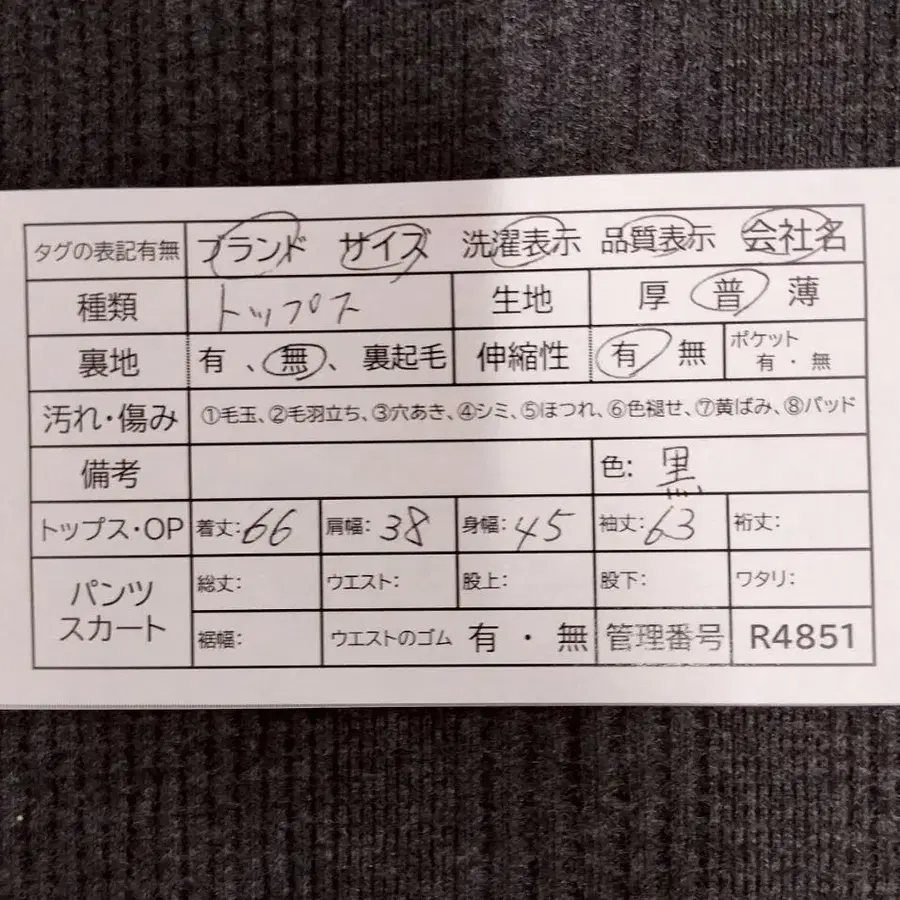 タグの表記有無 ブランド サイズ 洗濯表示 品質表示 会社名
種類 トップス 生地 厚 普 薄
裏地 有 、無、裏起毛 伸縮性 有 無 ポケット 有・無
汚れ・傷み ①毛玉、②毛羽立ち、③穴あき、④シミ、⑤ほつれ、⑥色褪せ、⑦黄ばみ、⑧パッド
備考 色: 黒
トップス・OP 着丈:66 肩幅:38 身幅:45 袖丈:63 裄丈:
パンツ スカート 総丈: ウエスト: 股上: 股下: ワタリ:
裾幅: ウエストのゴム 有・無 管理番号 R4851